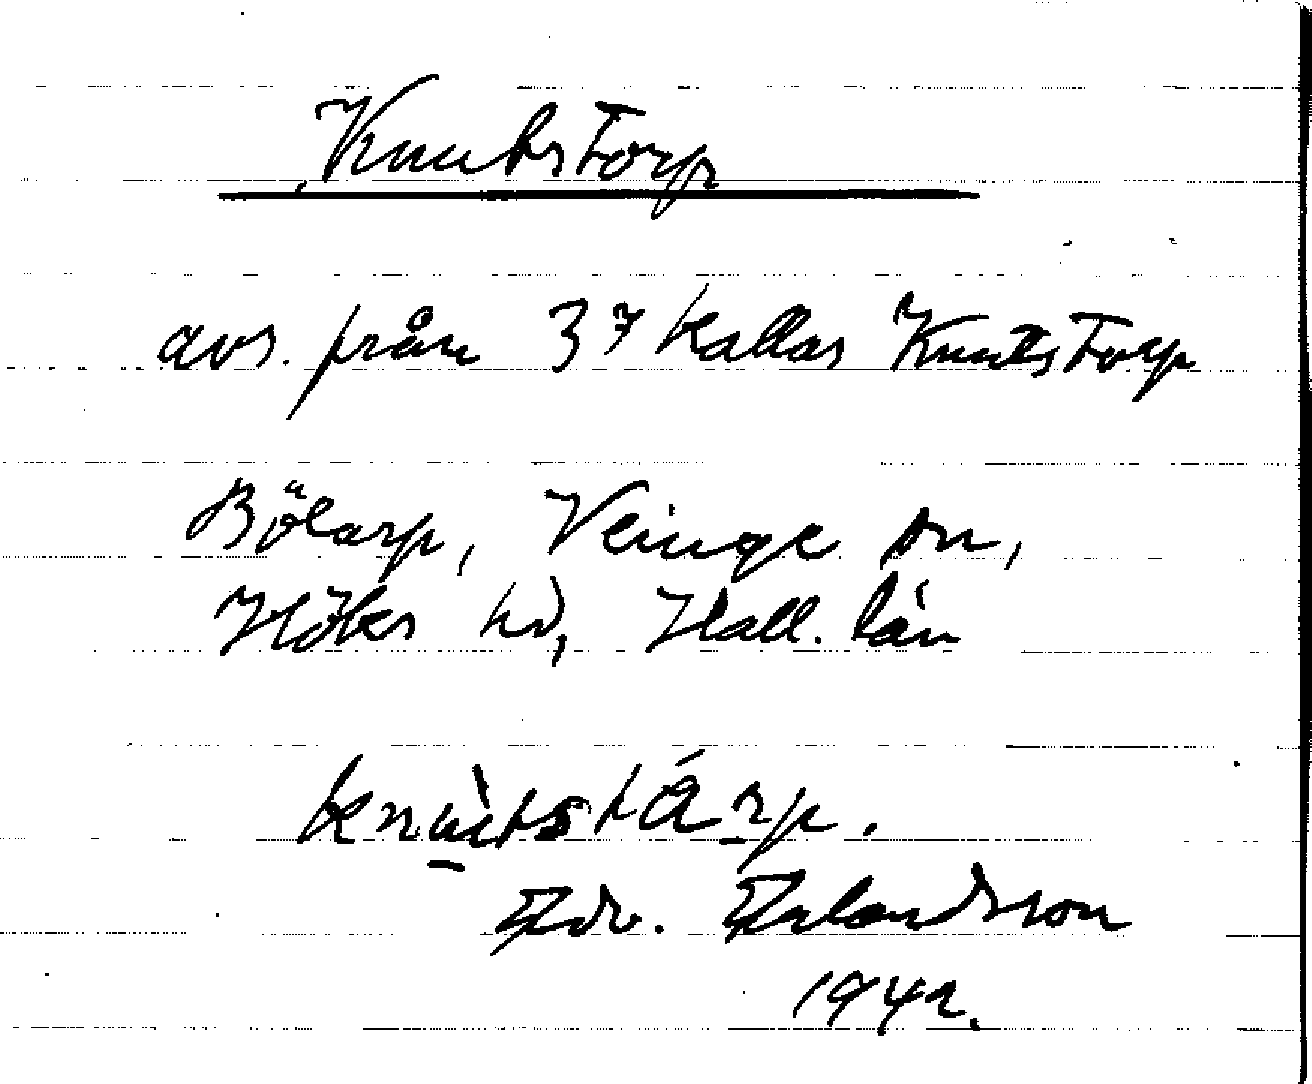 Knutstorp
avs. från 3⁷ kallas Knutstorp
Bölarp, Veinge sn,
Höks hd, Hall. län
knùtstá̊rp.
Edv. Erlandsson
1942.